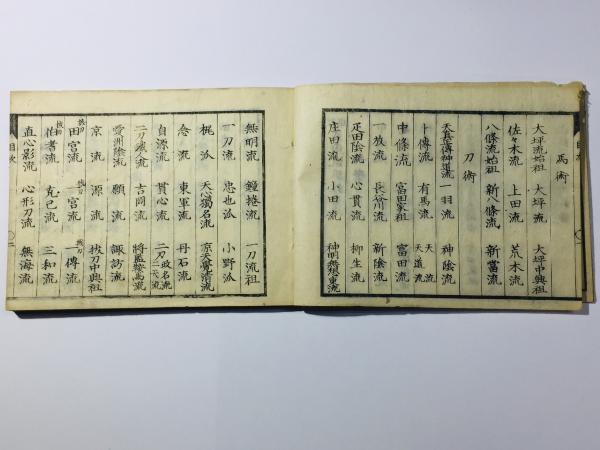 馬術
大坪流始祖 大坪流 大坪中興祖
佐々木流 上田流 荒木流
八條流始祖 新八條流 新當流
刀術
天真正傳神道流 一羽流 神陰流
卜傳流 有馬流 天流 天道流
中條流 冨田家祖 冨田流
一放流 長谷川流 新陰流
疋田陰流 心貫流 柳生流
庄田流 小田流 神明無想東流
目次
無明流 鐘捲流 一刀流祖
一刀流 忠也派 小野派
梶派 天心獨名流 京天真寛清流
念流 東軍流 丹石流
自源流 貫心流 二刀政名流
二刀鐵人流 吉岡流 將監鞍馬流
愛洲陰流 願流 諏訪流
京流 源流 拔刀中興祖
拔刀 田宮流 一宮流 拔刀 一傳流
拔刀 伯耆流 克己流 三和流
直心影流 心形刀流 無海流
目次